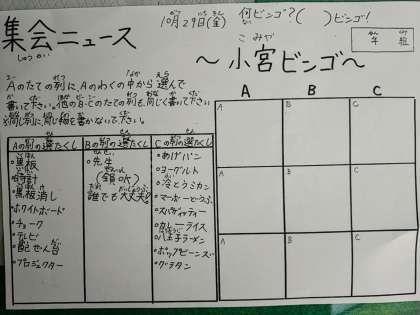 10月29日(金) 何ビンゴ?( )ビンゴ!
集会ニュース
しゅうかい
こみや
～小宮ビンゴ～
年 組
Aのたての列に、Aのわくの中から選んで
書いて下さい。他のB・Cのたての列も同じく書いて下さい
※同じ列に同じ物を書かないで下さい。
A B C
Aの列の選たくし
黒板
時計
黒板消し
ホワイトボード
チョーク
テレビ
配ぜん台
プロジェクター
Bの列の選たくし
先生
誰でも大丈夫!
Cの列の選たくし
あげパン
ヨーグルト
冷とうミカン
マーボーどうふ
スパゲッティー
カレーライス
八王子ラーメン
ポップビーンズ
グラタン
A B C
A B C
A B C